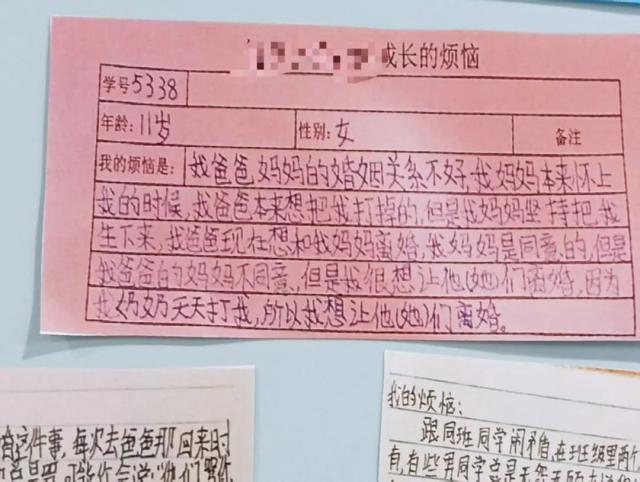 成长的烦恼
学号5338
年龄:11岁 性别:女 备注
我的烦恼是:我爸爸妈妈的婚姻关系不好,我妈妈本来怀上
我的时候,我爸爸本来想把我打掉的,但是我妈妈坚持把我
生下来,我爸爸现在想和我妈妈离婚,我妈妈是同意的,但是
我爸爸的妈妈不同意,但是我很想让他(她)们离婚,因为
我奶奶天天打我,所以我想让他(她)们离婚。
这件事,每次去爸爸那回来时
我的烦恼:
跟同班同学闹矛盾,在班级里两个
有,有些男同学总是无